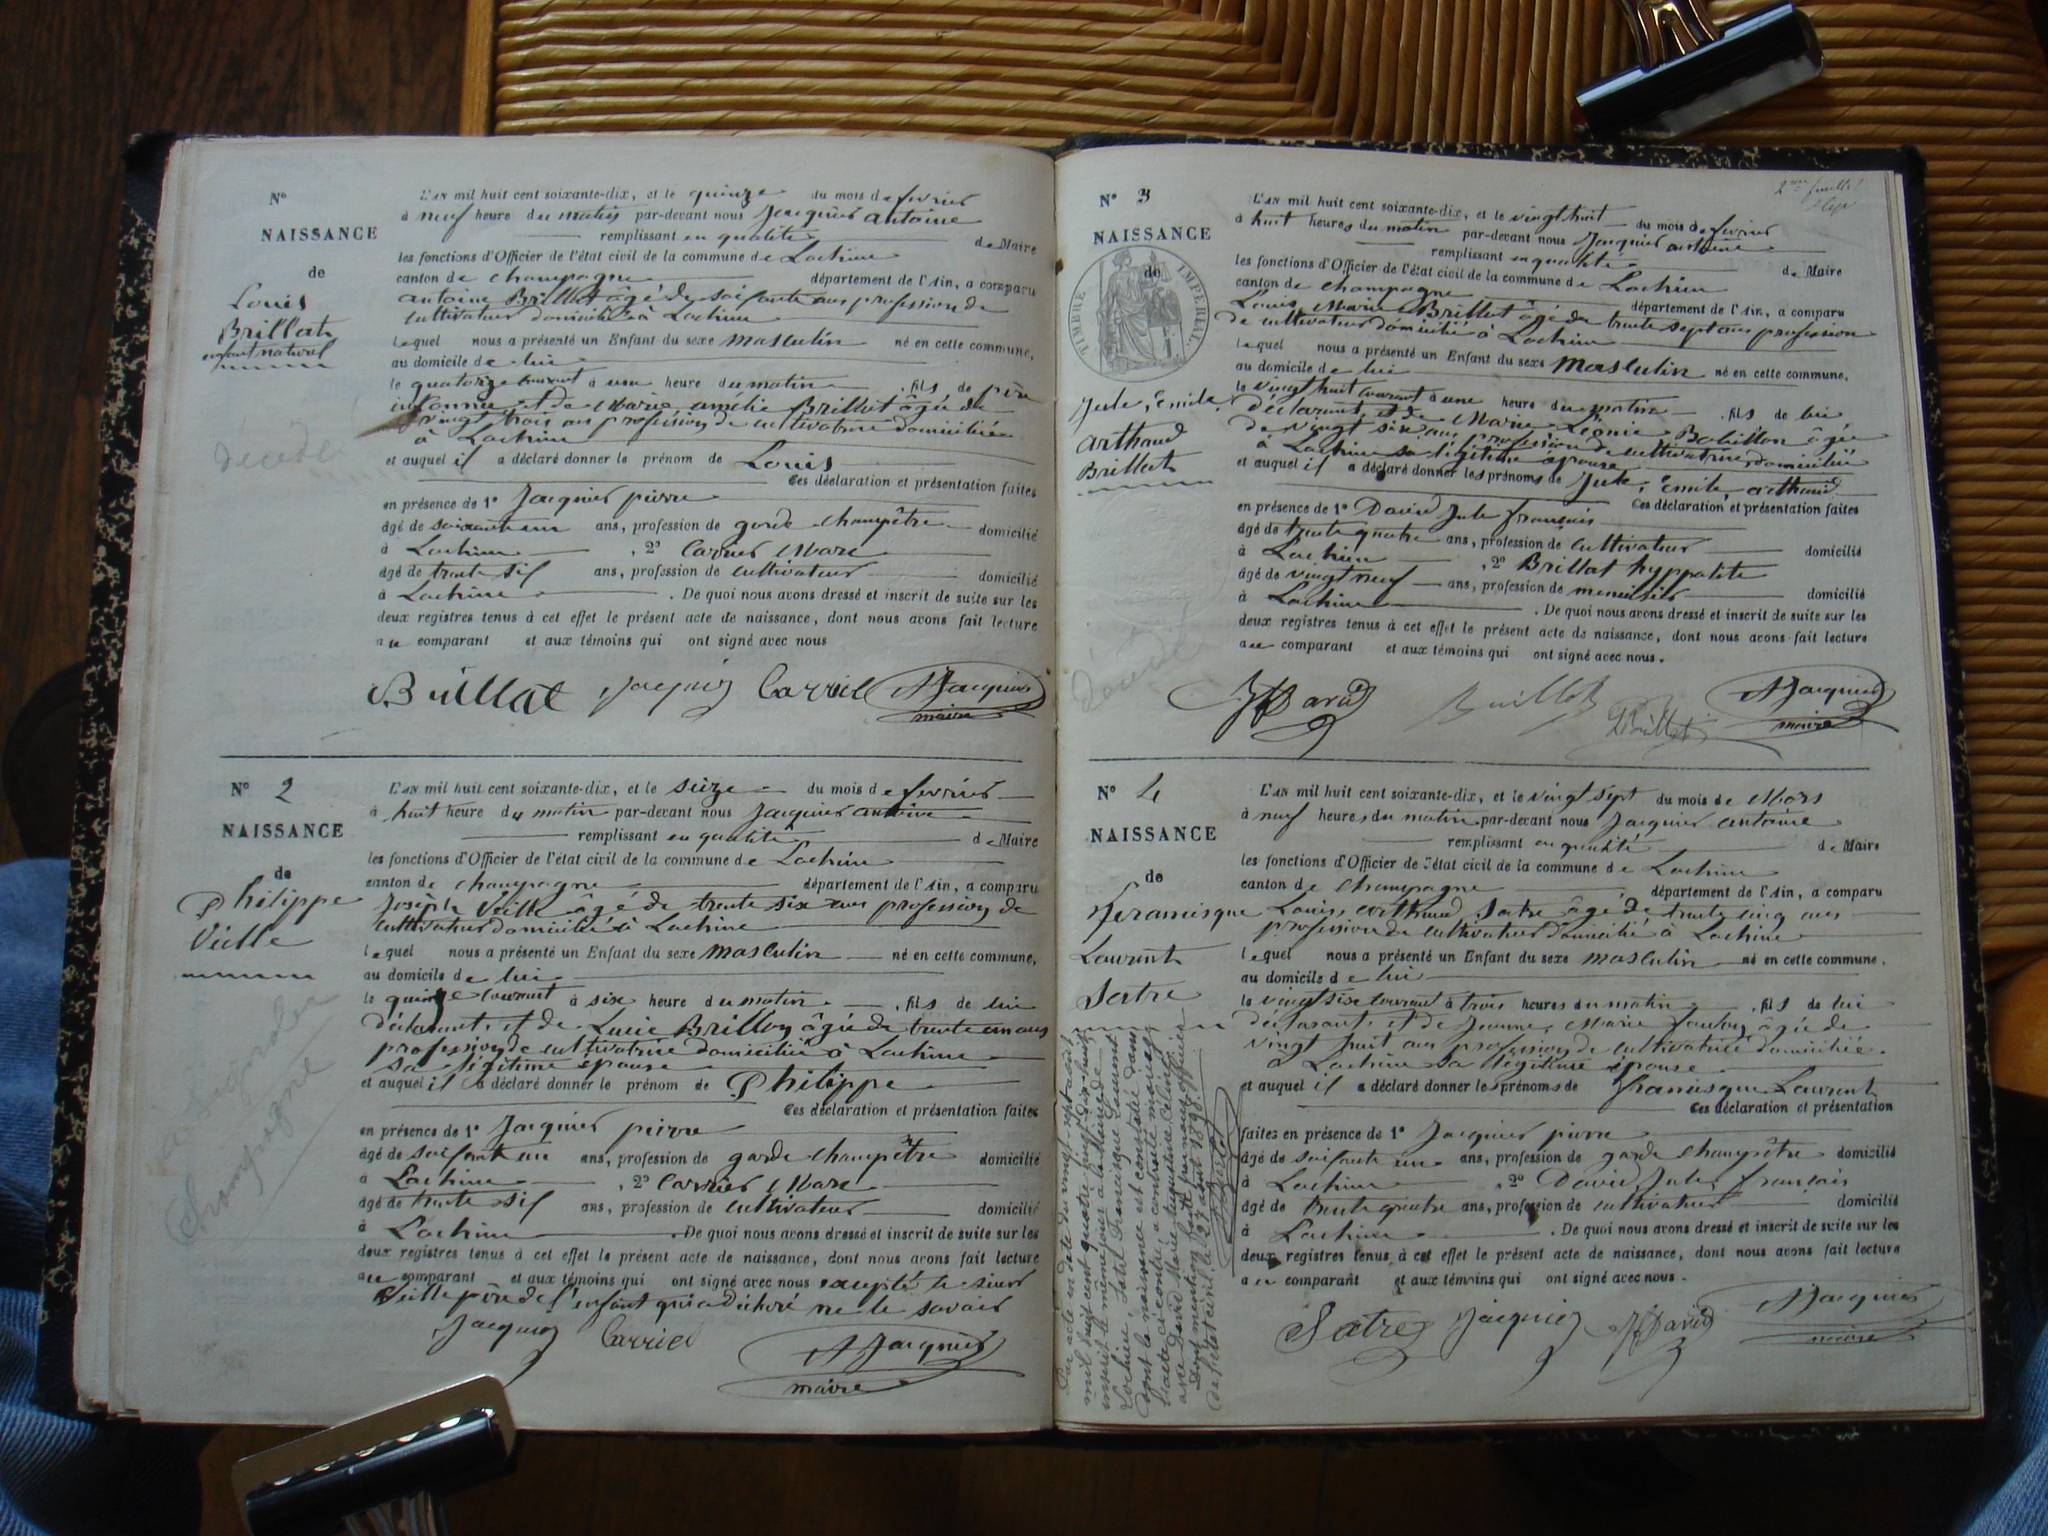 N°
NAISSANCE
de
Louis
Brillat
enfant naturel
décédé
L'AN mil huit cent soixante-dix, et le quinze du mois de fevrier
à neuf heure du matin par-devant nous Jacquier antoine
remplissant en qualité de Maire
les fonctions d'Officier de l'état civil de la commune de Lochieu
canton de champagne département de l'Ain, a comparu
antoine Brillat âgé de soixante ans profession de
cultivateur domicilié à Lochieu
lequel nous a présenté un Enfant du sexe masculin né en cette commune,
au domicile de lui
le quatorze courant à une heure du matin fils de père
inconnu et de Marie amélie Brillat âgée de
vingt trois ans profession de cultivatrice domiciliée
à Lochieu
et auquel il a déclaré donner le prénom de Louis
Ces déclaration et présentation faites
en présence de 1° Jacquier pierre
âgé de soixante un ans, profession de garde champêtre domicilié
à Lochieu , 2° Carrier Marc
âgé de trente six ans, profession de cultivateur domicilié
à Lochieu . De quoi nous avons dressé et inscrit de suite sur les
deux registres tenus à cet effet le présent acte de naissance, dont nous avons fait lecture
au comparant et aux témoins qui ont signé avec nous
Brillat Jacquier Carrier A Jacquier
maire
N° 2
NAISSANCE
de
Philippe
Vielle
a signaler
Champagne
L'AN mil huit cent soixante-dix, et le seize du mois de fevrier
à huit heure du matin par-devant nous Jacquier antoine
remplissant en qualité de Maire
les fonctions d'Officier de l'état civil de la commune de Lochieu
canton de champagne département de l'Ain, a comparu
Joseph Vielle âgé de trente six ans profession de
cultivateur domicilié à Lochieu
lequel nous a présenté un Enfant du sexe masculin né en cette commune,
au domicile de lui
le quinze courant à six heure du matin , fils de lui
déclarant, et de Lucie Brillon âgée de trente un ans
profession de cultivatrice domiciliée à Lochieu
sa légitime épouse
et auquel il a déclaré donner le prénom de Philippe
Ces déclaration et présentation faites
en présence de 1° Jacquier pierre
âgé de soixante un ans, profession de garde champêtre domicilié
à Lochieu , 2° Carrier Marc
âgé de trente six ans, profession de cultivateur domicilié
à Lochieu . De quoi nous avons dressé et inscrit de suite sur les
deux registres tenus à cet effet le présent acte de naissance, dont nous avons fait lecture
au comparant et aux témoins qui ont signé avec nous excepté le sieur
Vielle père de l'enfant qui a déclaré ne le savoir
Jacquier Carrier A Jacquier
maire
2me feuillet
N° 3
NAISSANCE
de
TIMBRE IMPERIAL.
Jule, Emile,
arthaud
Brillat
décédé
L'AN mil huit cent soixante-dix, et le vingt huit du mois de fevrier
à huit heures du matin par-devant nous Jacquier antoine
remplissant en qualité de Maire
les fonctions d'Officier de l'état civil de la commune de Lochieu
canton de champagne département de l'Ain, a comparu
Louis, Marie Brillat âgé de trente sept ans profession
de cultivateur domicilié à Lochieu
lequel nous a présenté un Enfant du sexe masculin né en cette commune,
au domicile de lui
le vingt huit courant à une heure du matin , fils de lui
déclarant, et de Marie Léonie Bobillon âgée
de vingt six ans profession de cultivatrice, domiciliée
à Lochieu sa légitime épouse
et auquel il a déclaré donner les prénoms de Jule, Emile, arthaud
Ces déclaration et présentation faites
en présence de 1° David Jule françois
âgé de trente quatre ans, profession de cultivateur domicilié
à Lochieu , 2° Brillat hyppolite
âgé de vingt neuf ans, profession de menuisier domicilié
à Lochieu . De quoi nous avons dressé et inscrit de suite sur les
deux registres tenus à cet effet le présent acte de naissance, dont nous avons fait lecture
au comparant et aux témoins qui ont signé avec nous.
JF David Brillat HBrillat A Jacquier
maire
N° 4
NAISSANCE
de
francisque
Laurent
Satre
Par acte en date du vingt-sept août
mil huit cent quatre vingt dix-huit
inscrit le même jour à la Mairie de
Lochieu, Satre Francisque Laurent
dont la naissance est constatée dans
l'acte ci-contre, a contracté mariage
avec David Marie
Dont mention faite par nous officier
de l'état civil, le 27 août 1898.
L'AN mil huit cent soixante-dix, et le vingt sept du mois de Mars
à neuf heures du matin par-devant nous Jacquier antoine
remplissant en qualité de Maire
les fonctions d'Officier de l'état civil de la commune de Lochieu
canton de champagne , département de l'Ain, a comparu
Louis, arthaud Satre âgé de trente cinq ans
profession de cultivateur domicilié à Lochieu
lequel nous a présenté un Enfant du sexe masculin né en cette commune,
au domicile de lui
le vingt six courant à trois heures du matin , fils de lui
déclarant, et de Jeanne, Marie âgée de
vingt huit ans profession de cultivatrice domiciliée
à Lochieu sa légitime épouse
et auquel il a déclaré donner les prénoms de francisque Laurent
Ces déclaration et présentation
faites en présence de 1° Jacquier pierre
âgé de soixante un ans, profession de garde champêtre domicilié
à Lochieu , 2° David Jule françois
âgé de trente quatre ans, profession de cultivateur domicilié
à Lochieu . De quoi nous avons dressé et inscrit de suite sur les
deux registres tenus à cet effet le présent acte de naissance, dont nous avons fait lecture
au comparant et aux témoins qui ont signé avec nous.
Satre Jacquier JF David A Jacquier
maire